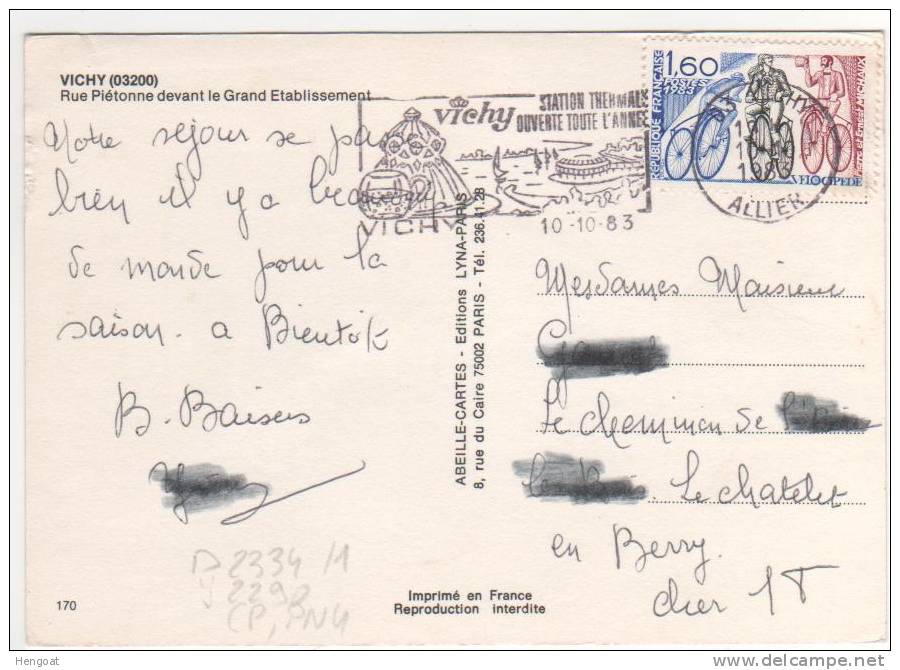 VICHY (03200)
Rue Piétonne devant le Grand Etablissement
Notre séjour se passe
bien il y a beaucoup
de monde pour la
saison. a Bientôt
B. Baisers
D 2334 /1
Y 2290
CP, PN4
170
ABEILLE-CARTES - Editions LYNA-PARIS
8, rue du Caire 75002 PARIS - Tél. 236.41.28
Imprimé en France
Reproduction interdite
vichy
STATION THERMALE
OUVERTE TOUTE L'ANNEE
VICHY
10-10-83
1983
ALLIER
RÉPUBLIQUE FRANÇAISE
1,60
POSTES
1983
Pierre et Ernest MICHAUX
VELOCIPEDE
Mesdames Maisieux
de
Le Chatelet
en Berry.
Cher
Hengoat
www.delcampe.net